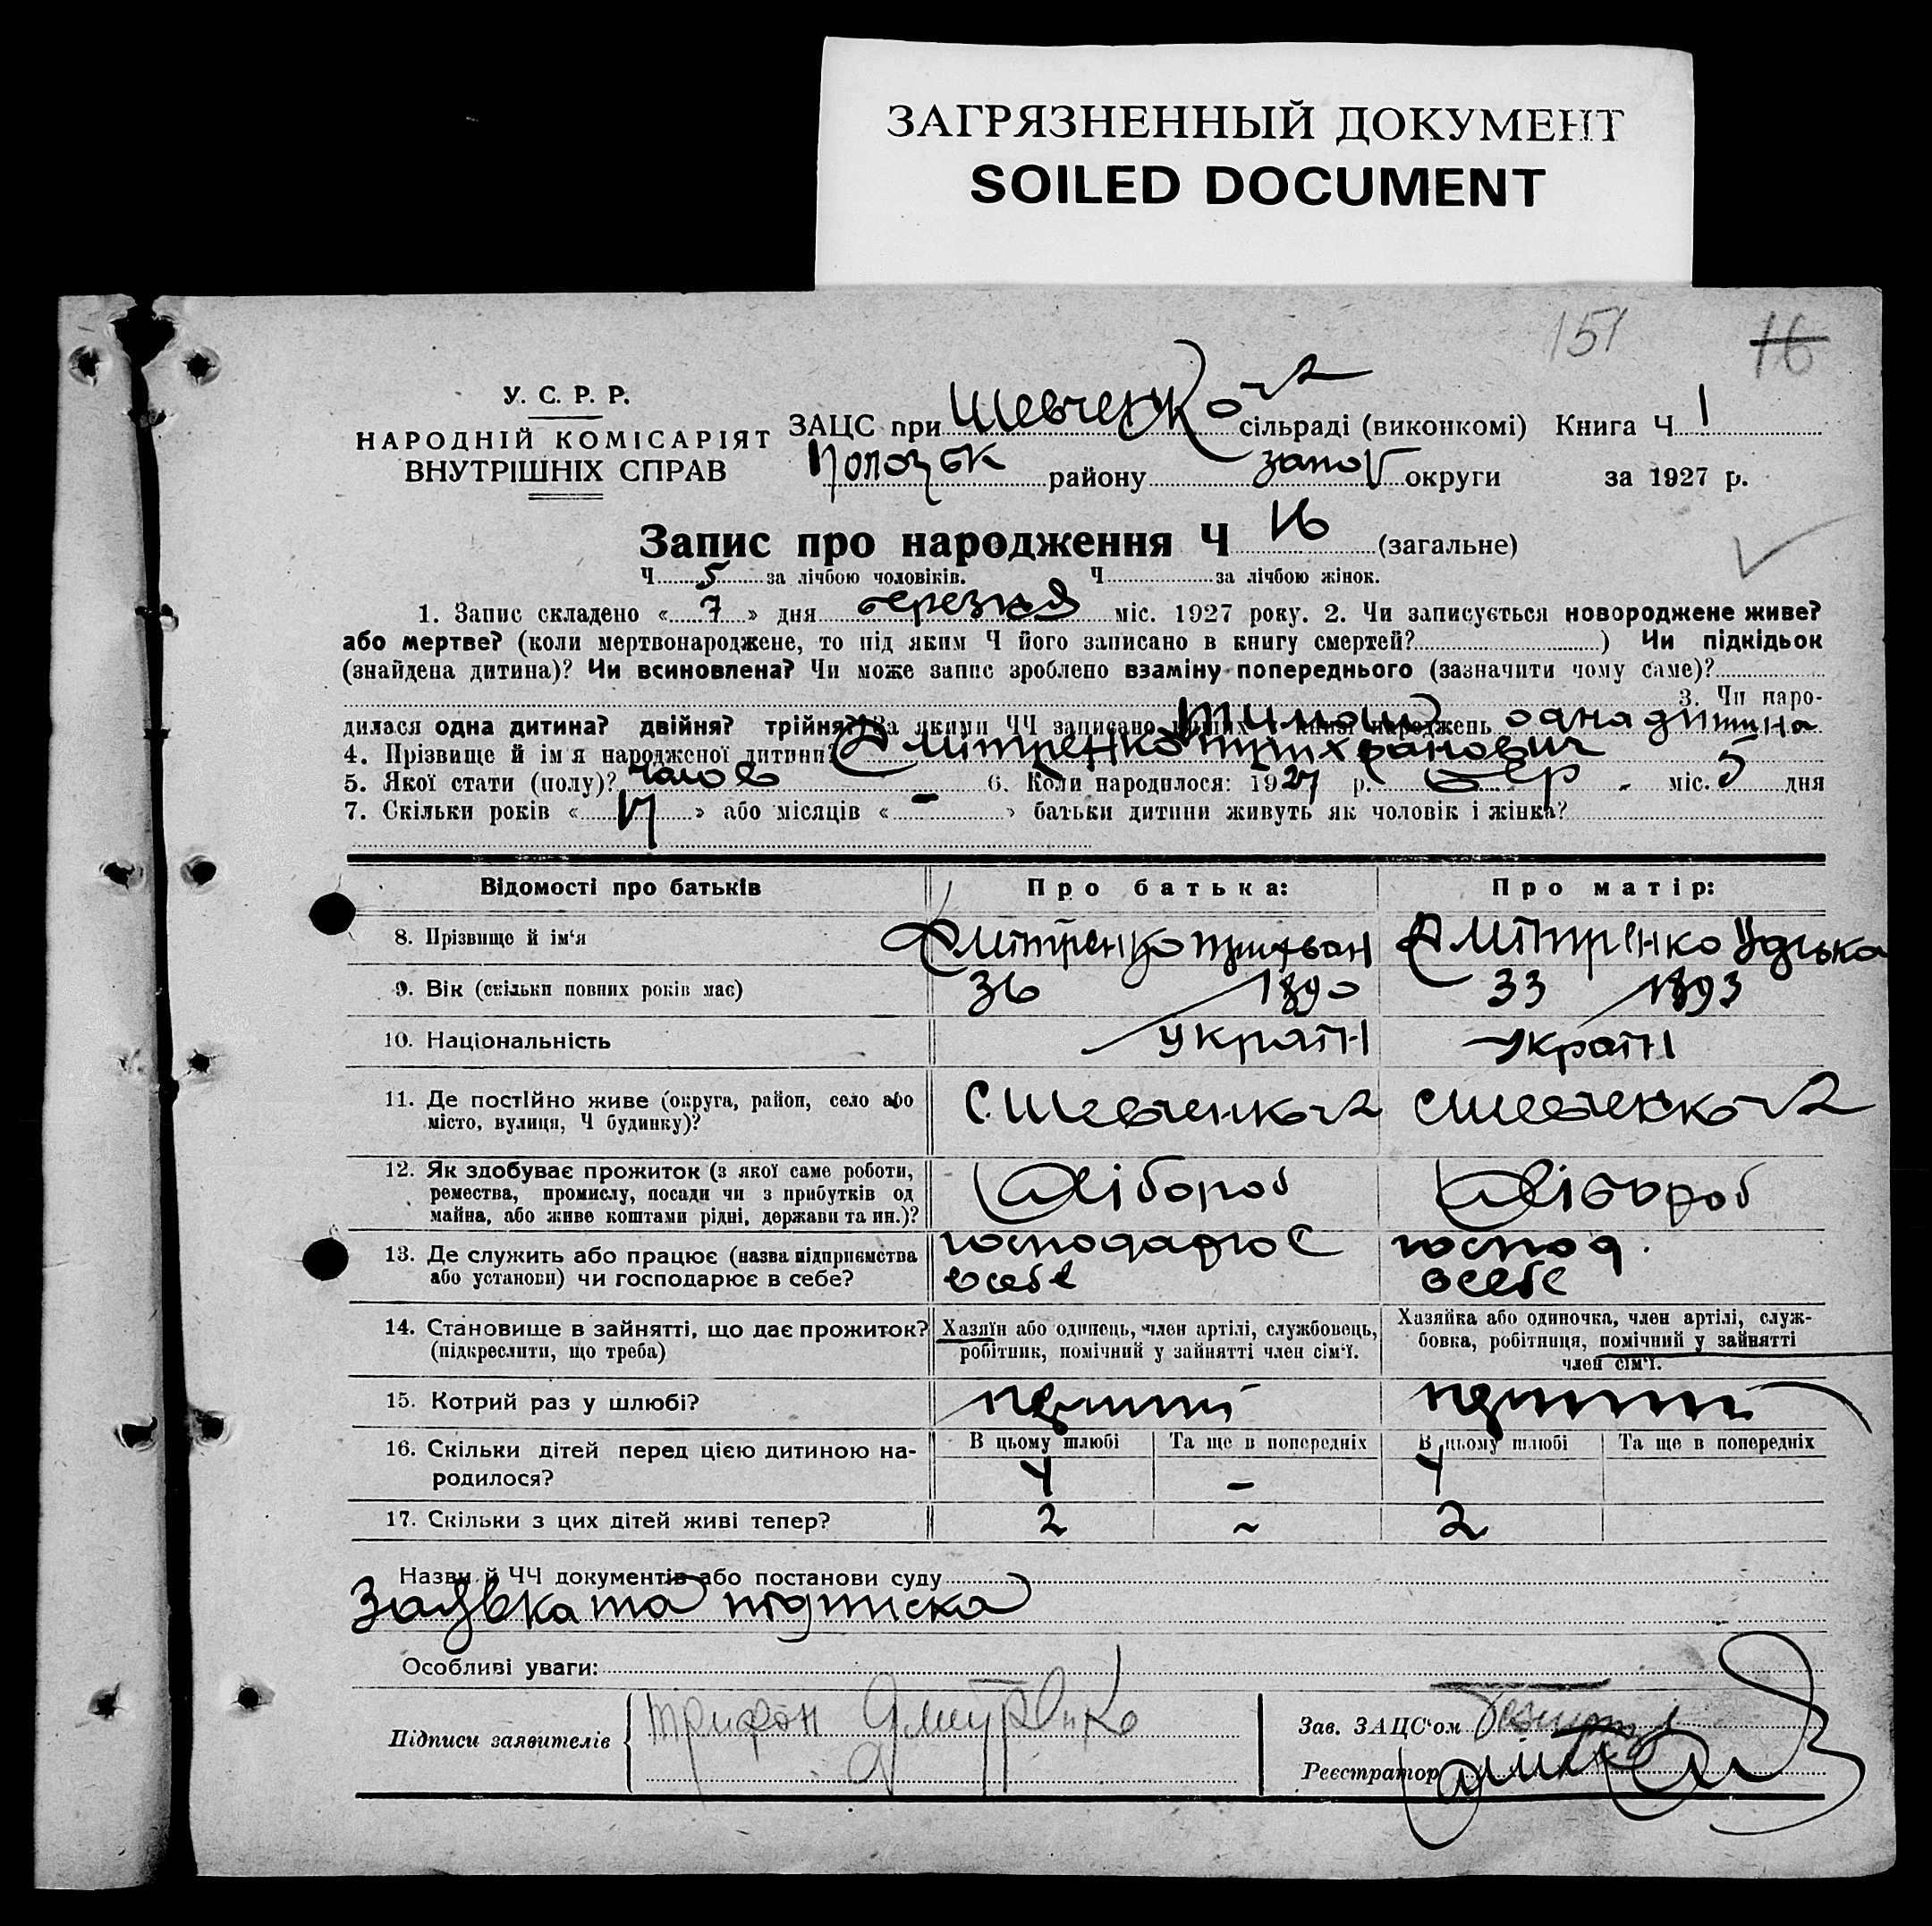 ЗАГРЯЗНЕННЫЙ ДОКУМЕНТ
SOILED DOCUMENT
151 16
У. С. Р. Р.
НАРОДНІЙ КОМІСАРІЯТ
ВНУТРІШНІХ СПРАВ
ЗАЦС при Шевченко сільраді (виконкомі) Книга Ч 1
Пологськ району запор округи за 1927 р.
Запис про народження Ч 16 (загальне)
Ч 5 за лічбою чоловіків. Ч за лічбою жінок.
1. Запис складено « 7 » дня березня міс. 1927 року. 2. Чи записується новороджене живе?
або мертве? (коли мертвонароджене, то під яким Ч його записано в книгу смертей? ) Чи підкідьок
(знайдена дитина)? Чи всиновлена? Чи може запис зроблено взаміну попереднього (зазначити чому саме)?
3. Чи наро-
дилася одна дитина? двійня? трійня? За якими ЧЧ записано інших в книзі народжень одна дитина
4. Прізвище й ім'я народженої дитини Дмітренко Тимош
5. Якої стати (полу)? чолов 6. Коли народилося: 1927 р. бер - міс. 5 дня
7. Скільки років « 17 » або місяців « - » батьки дитини живуть як чоловік і жінка?
Відомості про батьків Про батька: Про матір:
8. Прізвище й ім'я Дмітренко Дмітренко
9. Вік (скільки повних років має) 36 1890 33 1893
10. Національність україн україн
11. Де постійно живе (округа, район, село або С. Шевченко с Шевченко
місто, вулиця, Ч будинку)?
12. Як здобуває прожиток (з якої саме роботи, хлібороб хлібороб
ремества, промислу, посади чи з прибутків од
майна, або живе коштами рідні, держави та ин.)?
13. Де служить або працює (назва підприємства господарює господ.
або установи) чи господарює в себе? всебе всебе
14. Становище в зайнятті, що дає прожиток? Хазяїн або одинець, член артілі, службовець, Хазяйка або одиночка, член артілі, служ-
(підкреслити, що треба) робітник, помічний у зайнятті член сім'ї. бовка, робітниця, помічний у зайнятті
член сім'ї.
15. Котрий раз у шлюбі? перший перший
16. Скільки дітей перед цією дитиною на- В цьому шлюбі Та ще в попередніх В цьому шлюбі Та ще в попередніх
родилося? 4 - 4
17. Скільки з цих дітей живі тепер? 2 ~ 2
Назви й ЧЧ документів або постанови суду
Заявка та підписка
Особливі уваги:
Підписи заявителів Трифон Дмитренко
Зав. ЗАЦС'ом
Реєстратор